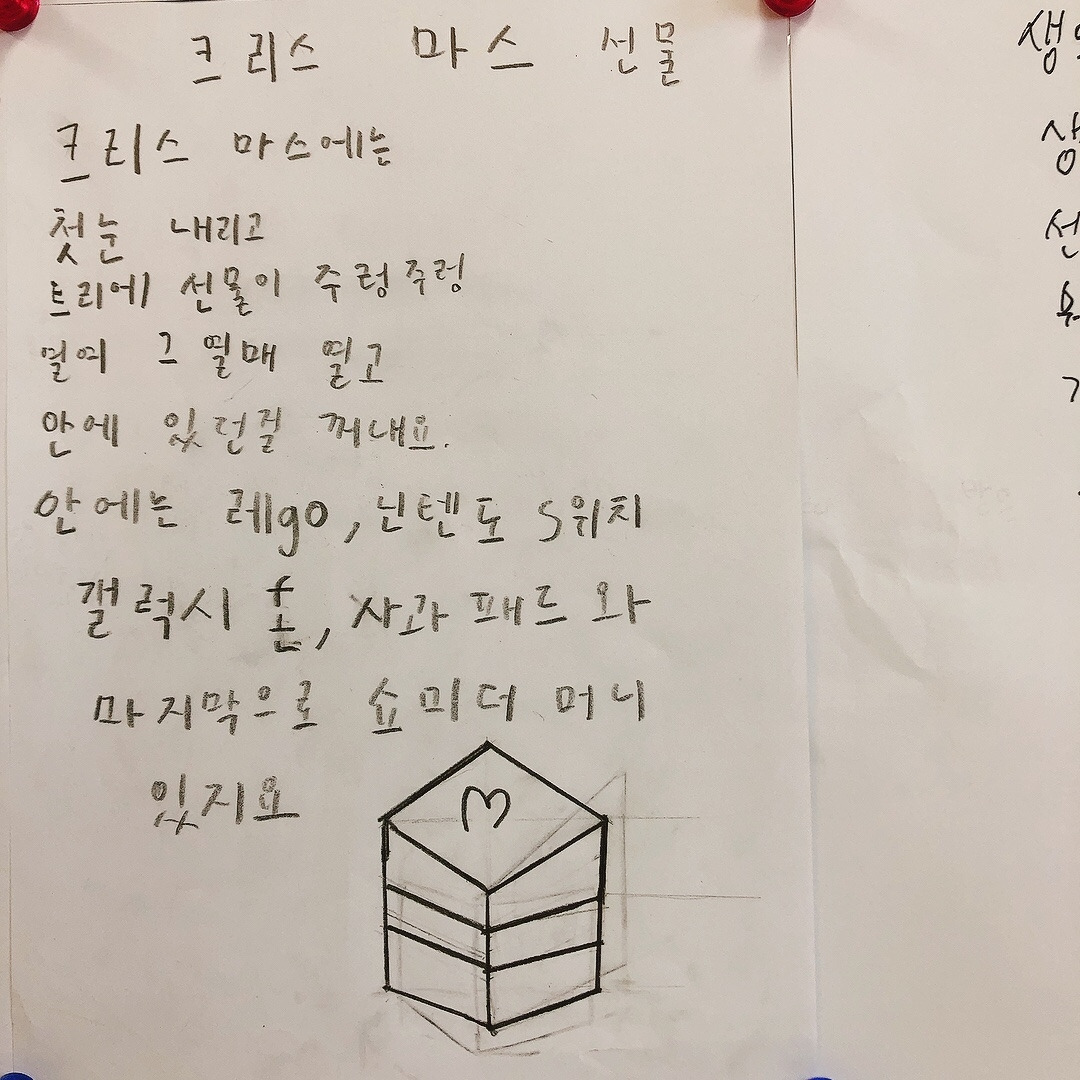 크리스 마스 선물
크리스 마스에는
첫눈 내리고
트리에 선물이 주렁주렁
열여 그 열매 열고
안에 있던걸 꺼내요.
안에는 레go, 닌텐도 s위치
갤럭시 f폰, 사과패드와
마지막으로 쇼미더 머니
있지요
M
생
생
선